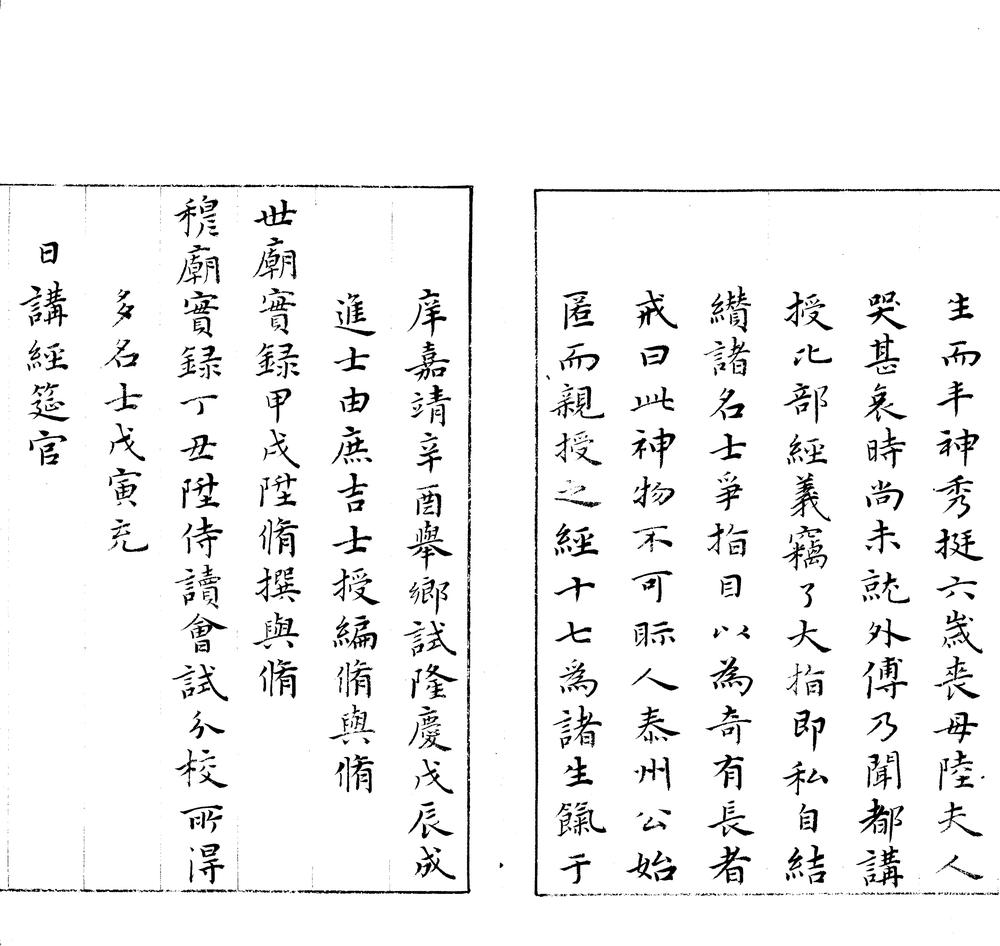 生而丰神秀挺六歲喪母陸夫人
哭甚哀時尚未就外傅乃聞都講
授比部經義竊了大指即私自結
纘諸名士爭指目以為奇有長者
戒曰此神物不可眎人泰州公始
匿而親授之經十七為諸生餼于
庠嘉靖辛酉舉鄉試隆慶戊辰成
進士由庶吉士授編脩與脩
世廟實録甲戌陞脩撰與脩
穆廟實録丁丑陞侍讀會試分校所得
多名士戊寅充
日講經筵官